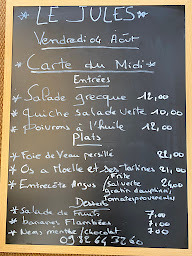 * LE JULES *
Vendredi 04 Août
* Carte du Midi *
Entrées
* Salade grecque 12,00
* quiche salade verte 10,00
* poivrons à l'huile 12,00
Plats
* Foie de Veau persillé 22,00
* Os a Moelle et ses Tartines 21,00
Frite
* Entrecôte Angus / Sal verte 26,00
gratin dauphinois,
Tomate provençale
Desserts
* Salade de Fruits 7,00
* bananes Flambées 7,00
* Nems menthe/chocolat 7,00